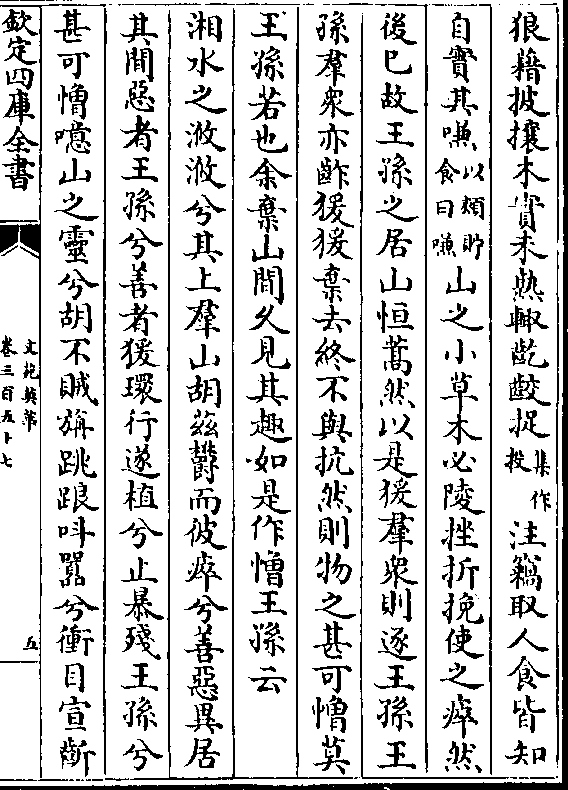 狼藉披攘木實未熟輙齕齩捉集作投注竊取人食皆知
自實其嗛以頰貯食曰嗛山之小草木必陵挫折挽使之瘁然
後已故王孫之居山恒蒿然以是猨羣衆則逐王孫王
孫羣衆亦齚猨猨棄去終不與抗然則物之甚可憎莫
王孫若也余棄山間久見其趣如是作憎王孫云
湘水之浟浟兮其上羣山胡兹鬱而彼瘁兮善惡異居
其間惡者王孫兮善者猨環行遂植兮止暴殘王孫兮
甚可憎噫山之靈兮胡不賊旃跳踉呌嚻兮衝目宣齗
欽定四庫全書
文苑英華
卷三百五十七
五